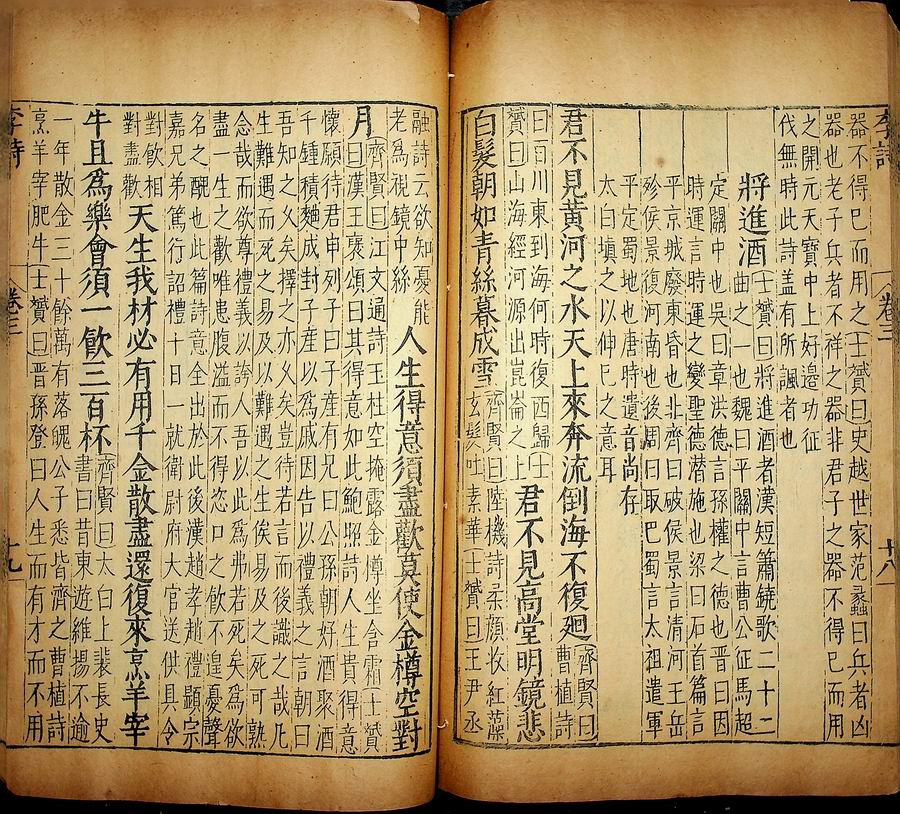 李詩 卷三 十八
器不得巳而用之士贇曰史越世家范蠡曰兵者凶
器也老子兵者不祥之器非君子之器不得巳而用
之開元天寶中上好邊功征
伐無時此詩盖有所諷者也
將進酒
士贇曰將進酒者漢短簫鐃歌二十二
曲之一也魏曰平關中言曹公征馬超
定關中也吳曰章洪德言孫權之德也晋曰因
時運言時運之變聖德潛施也梁曰石首篇言
平京城廢東昏也北齊曰破侯景言清河王岳
殄侯景復河南也後周曰取巴蜀言太祖遣軍
平定蜀地也唐時遺音尚存
太白填之以伸巳之意耳
君不見黃河之水天上來奔流倒海不復廻
齊賢曰
曹植詩
曰百川東到海何時復西歸士
贇曰山海經河源出崑崙之上
君不見高堂明鏡悲
白髮朝如青絲暮成雪
齊賢曰陸機詩柔顏收紅藻
玄髮吐素華士贇曰王尹丞
融詩云欲知憂能
老爲視鏡中絲
人生得意須盡歡莫使金樽空對
月
齊賢曰江文通詩玉柱空掩露金樽坐含霜士贇
曰漢王褒頌曰其得意如此鮑照詩人生貴得意
懷願待君申列子曰子産有兄曰公孫朝好酒聚酒
千鍾積麯成封子産以爲戚因告以禮義之言朝曰
吾知之乆矣擇之亦乆矣豈待若言而後識之哉凡
生難遇而死之易及以難遇之生俟易及之死可熟
念哉而欲尊禮義以誇人吾以此爲弗若死矣爲欲
盡一生之歡唯患腹溢而不得恣口之飲不遑憂聲
名之醜也此篇詩意全出於此後漢趙孝趙禮顯宗
嘉兄弟篤行詔禮十日一就衛尉府大官送供具令
對飲相
對盡歡
天生我材必有用千金散盡還復來烹羊宰
牛且爲樂會須一飲三百杯
齊賢曰太白上裴長史
書曰昔東遊維揚不逾
一年散金三十餘萬有落魄公子悉皆濟之曹植詩
烹羊宰肥牛士贇曰晋孫登曰人生而有才而不用
李詩 卷三 十九